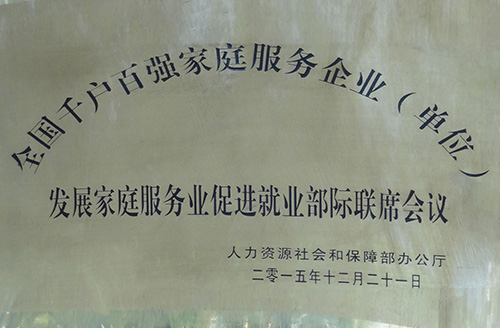 全国千户百强家庭服务企业（单位）
发展家庭服务业促进就业部际联席会议
人力资源社会和保障部办公厅
二零一五年十二月二十一日